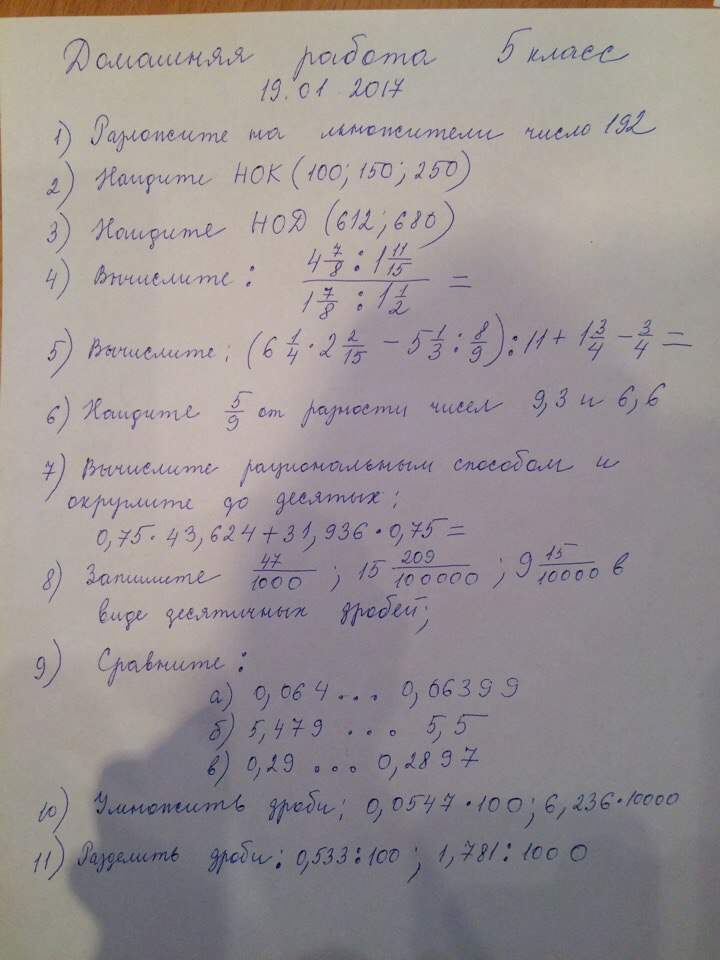 Домашняя работа 5 класс
19.01 2017
1) Разложите на множители число 192
2) Найдите НОК (100; 150; 250)
3) Найдите НОД (612; 680)
4) Вычислите: (4 7/8 : 1 11/15) / (1 7/8 : 1 1/2) =
5) Вычислите: (6 1/4 · 2 2/15 − 5 1/3 : 8/9) : 11 + 1 3/4 − 3/4 =
6) Найдите 5/9 от разности чисел 9,3 и 6,6
7) Вычислите рациональным способом и
округлите до десятых:
0,75 · 43,624 + 31,936 · 0,75 =
8) Запишите 47/1000 ; 15 209/100000 ; 9 15/10000 в
виде десятичных дробей;
9) Сравните:
а) 0,064 ... 0,06399
б) 5,479 ... 5,5
в) 0,29 ... 0,2897
10) Умножить дроби; 0,0547 · 100; 6,236 · 10000
11) Разделить дроби: 0,533 : 100 ; 1,781 : 1000